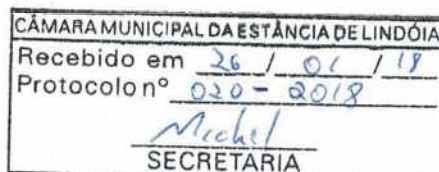 CÂMARA MUNICIPAL DA ESTÂNCIA DE LINDÓIA
Recebido em 26 / 01 / 18
Protocolo nº 020 - 2018
Michel
SECRETARIA